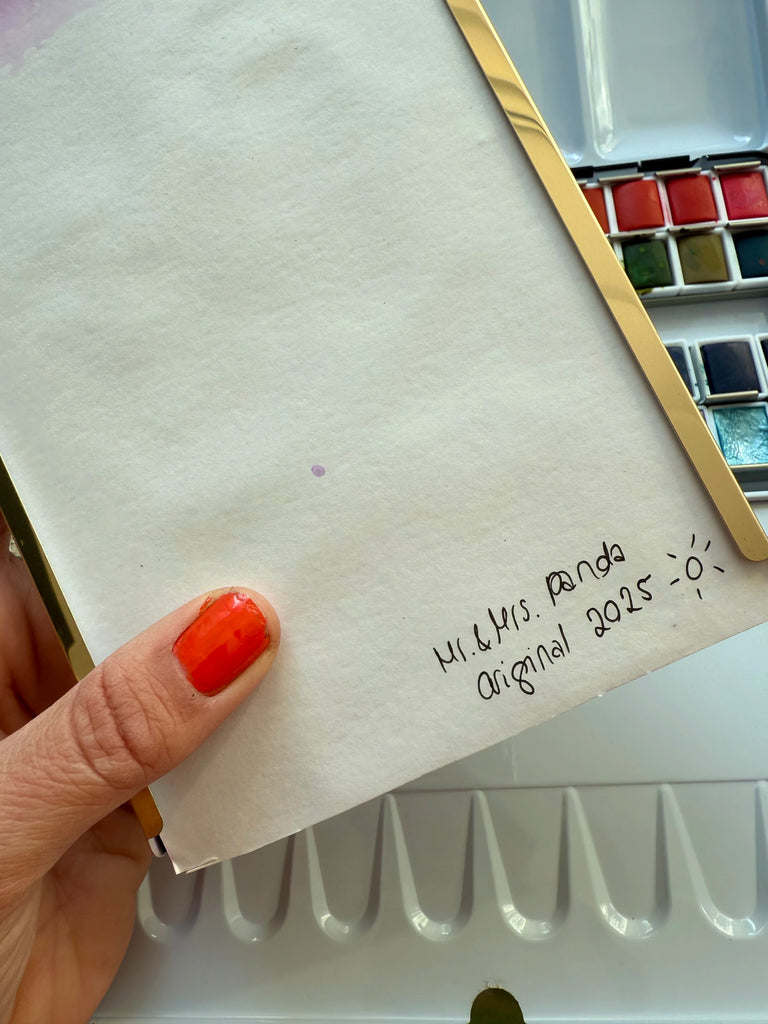 Mr. & Mrs. Panda
Original 2025